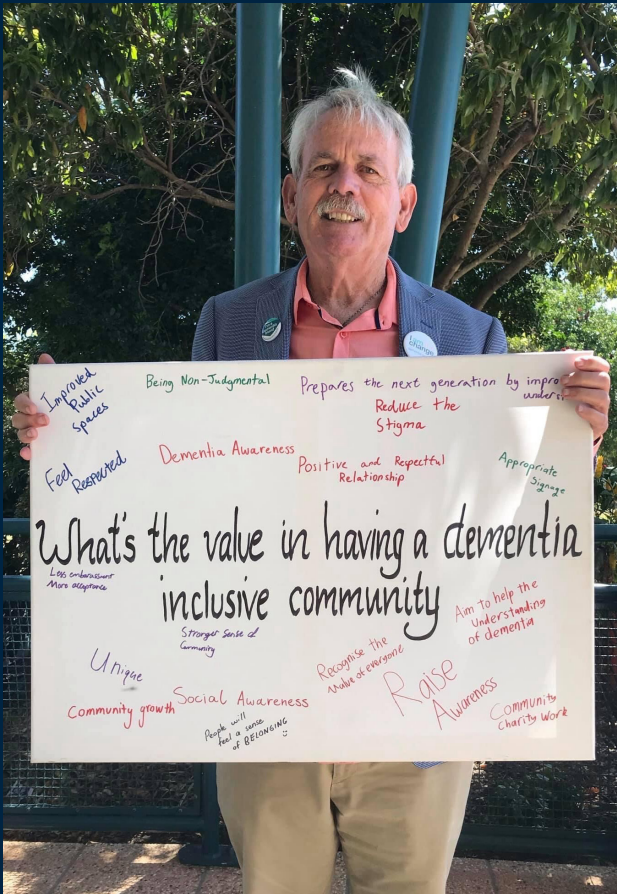 change
Improved
Public
spaces
Being Non-Judgmental
Prepares the next generation by impro
underst
Reduce the
Stigma
Feel Respected
Dementia Awareness
Positive and Respectful
Relationship
Appropriate
Signage
What's the value in having a dementia
inclusive community
Less embarassment
More acceptance
Stronger Sense of
Community
Aim to help the
Understanding
of dementia
Unique
Recognise the
Value of everyone
Raise
Awareness
Community growth
Social Awareness
People will
feel a sense
of BELONGING
Community
Charity Work